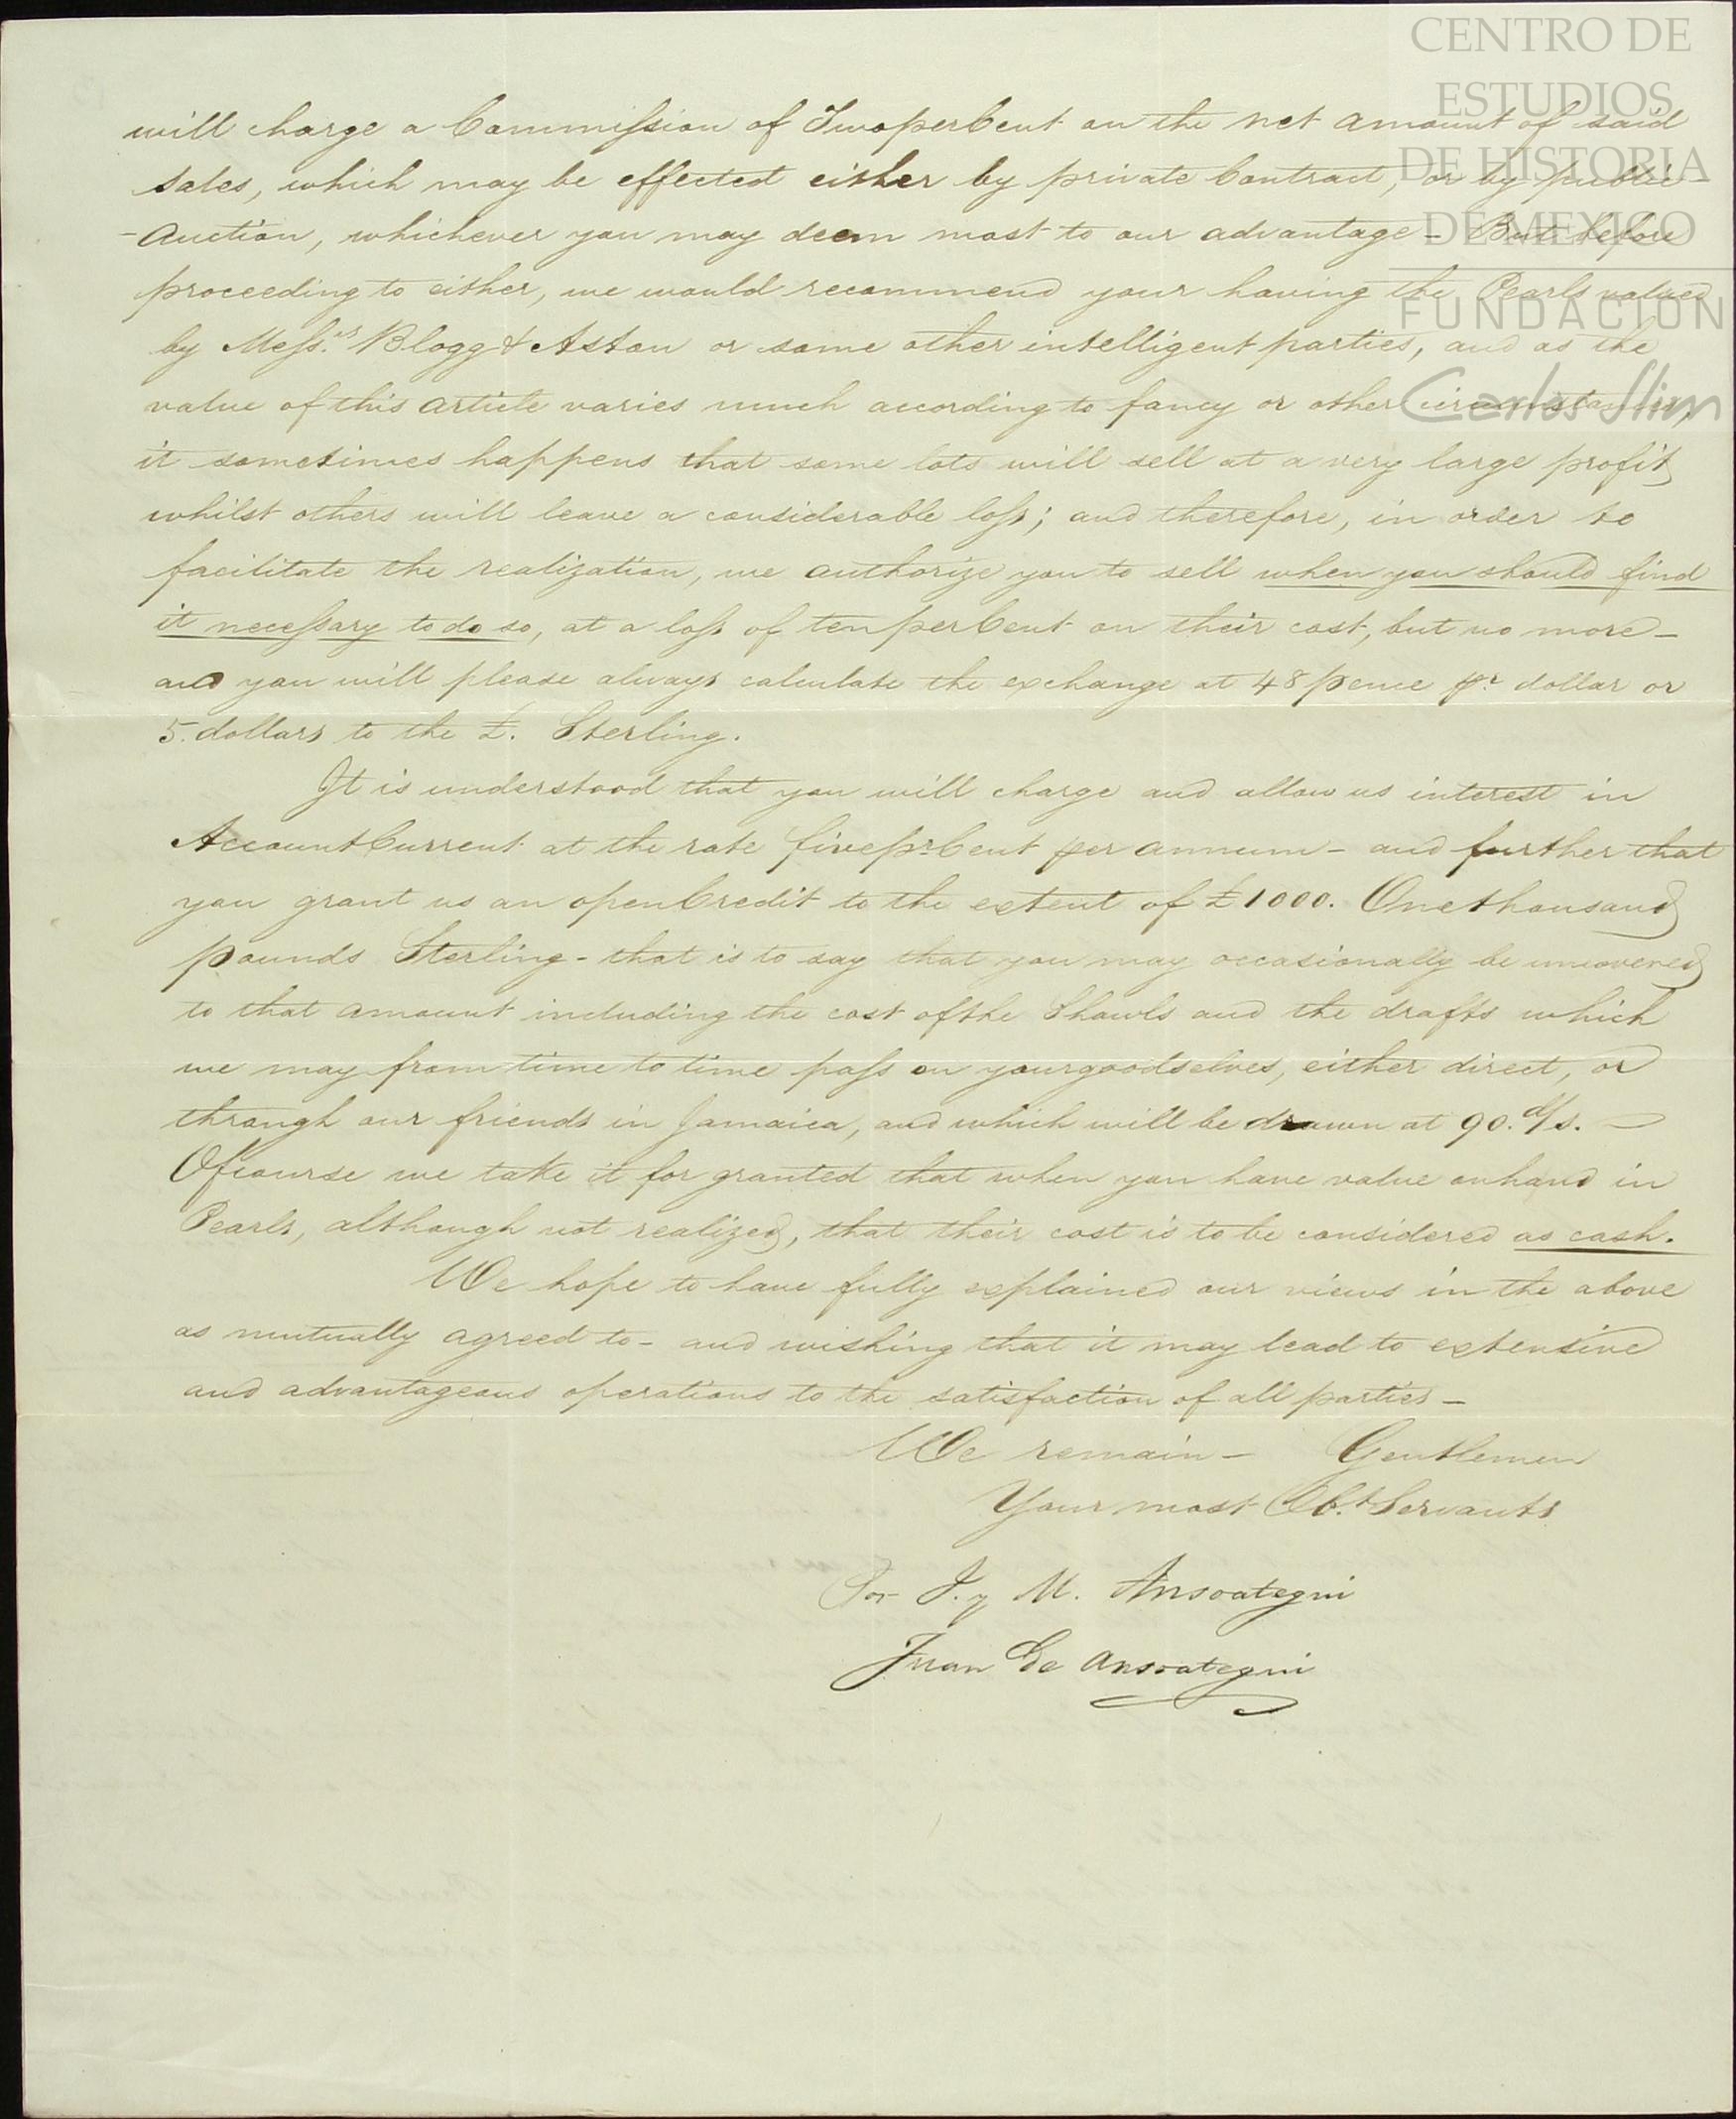 CENTRO DE
ESTUDIOS
DE HISTORIA
DE MEXICO
FUNDACION
Carlos Slim
will charge a Commission of Two per Cent on the net amount of said
sales, which may be effected either by private Contract, or by public
- Auction, whichever you may deem most to our advantage - But before
proceeding to either, we would recommend your having the Pearls valued
by Mess.rs Blogg & Aston or some other intelligent parties, and as the
value of this article varies much according to fancy or other circumstances,
it sometimes happens that some lots will sell at a very large profit
whilst others will leave a considerable loss; and therefore, in order to
facilitate the realization, we authorize you to sell when you should find
it necessary to do so, at a loss of ten per Cent on their cost, but no more -
and you will please always calculate the exchange at 48 pence pr. dollar or
5. dollars to the £. Sterling.
It is understood that you will charge and allow us interest in
Account Current at the rate five pr. Cent per annum - and further that
you grant us an open Credit to the extent of £1000. One thousand
pounds Sterling - that is to say that you may occasionally be uncovered
to that amount including the cost of the Shawls and the drafts which
we may from time to time pass on your goodselves, either direct, or
through our friends in Jamaica, and which will be drawn at 90. d/s. —
Of course we take it for granted that when you have value on hand in
Pearls, although not realized, that their cost is to be considered as cash.
We hope to have fully explained our views in the above
as mutually agreed to - and wishing that it may lead to extensive
and advantageous operations to the satisfaction of all parties -
We remain - Gentlemen
Your most Ob.t Servants
Por J. y M. Ansoategui
Juan de Ansoategui